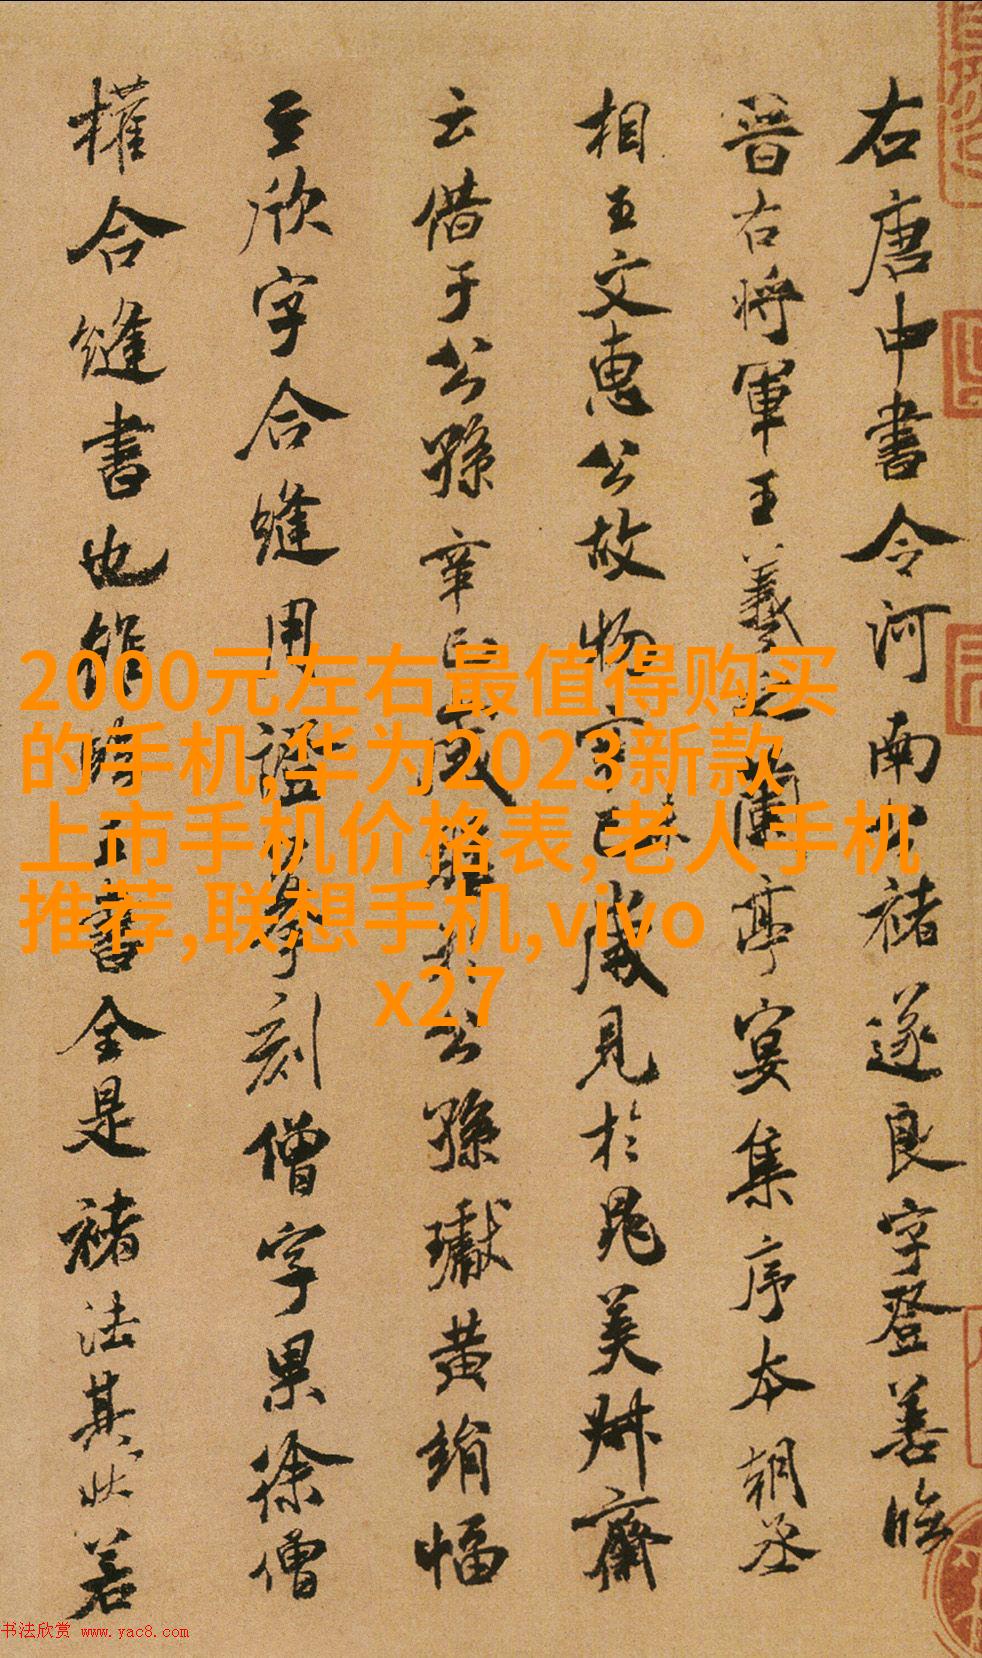 右唐中書令河南公褚遂良字登善臨
晉右將軍王羲之蘭亭宴集序本朝丞
相王文惠公故物辛巳歲見於晁美叔齋
云借于公孫辛巳歲購于公孫瓛黃絹幅
至欣字合縫用證摹刻僧字果徐僧
權合縫書也作時王書全是褚法其狀若
2000元左右最值得购买
的手机,华为2023新款
上市手机价格表,老人手机
推荐,联想手机,vivo
x27
书法欣赏 www.yac8.com